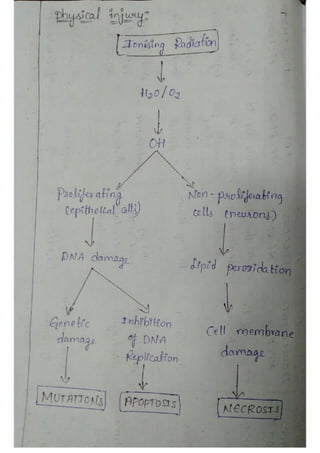 Physical injury:-
Ionising Radiation
H2O/O2
OH
Proliferating
(epithelial cells)
Non-proliferating
cells (neurons)
DNA damage
Lipid peroxidation
Genetic
damage
Inhibition
of DNA
Replication
Cell membrane
damage
MUTATIONS
APOPTOSIS
NECROSIS